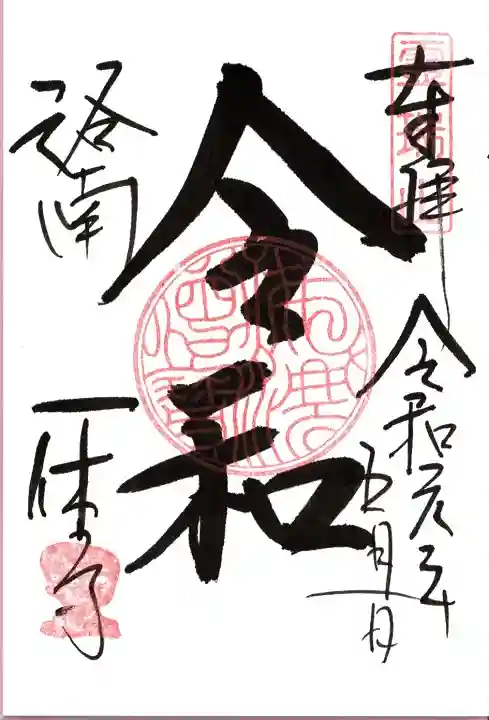 奉拝
令和元年
五月一日
令和
洛南
一休寺
霊瑞山